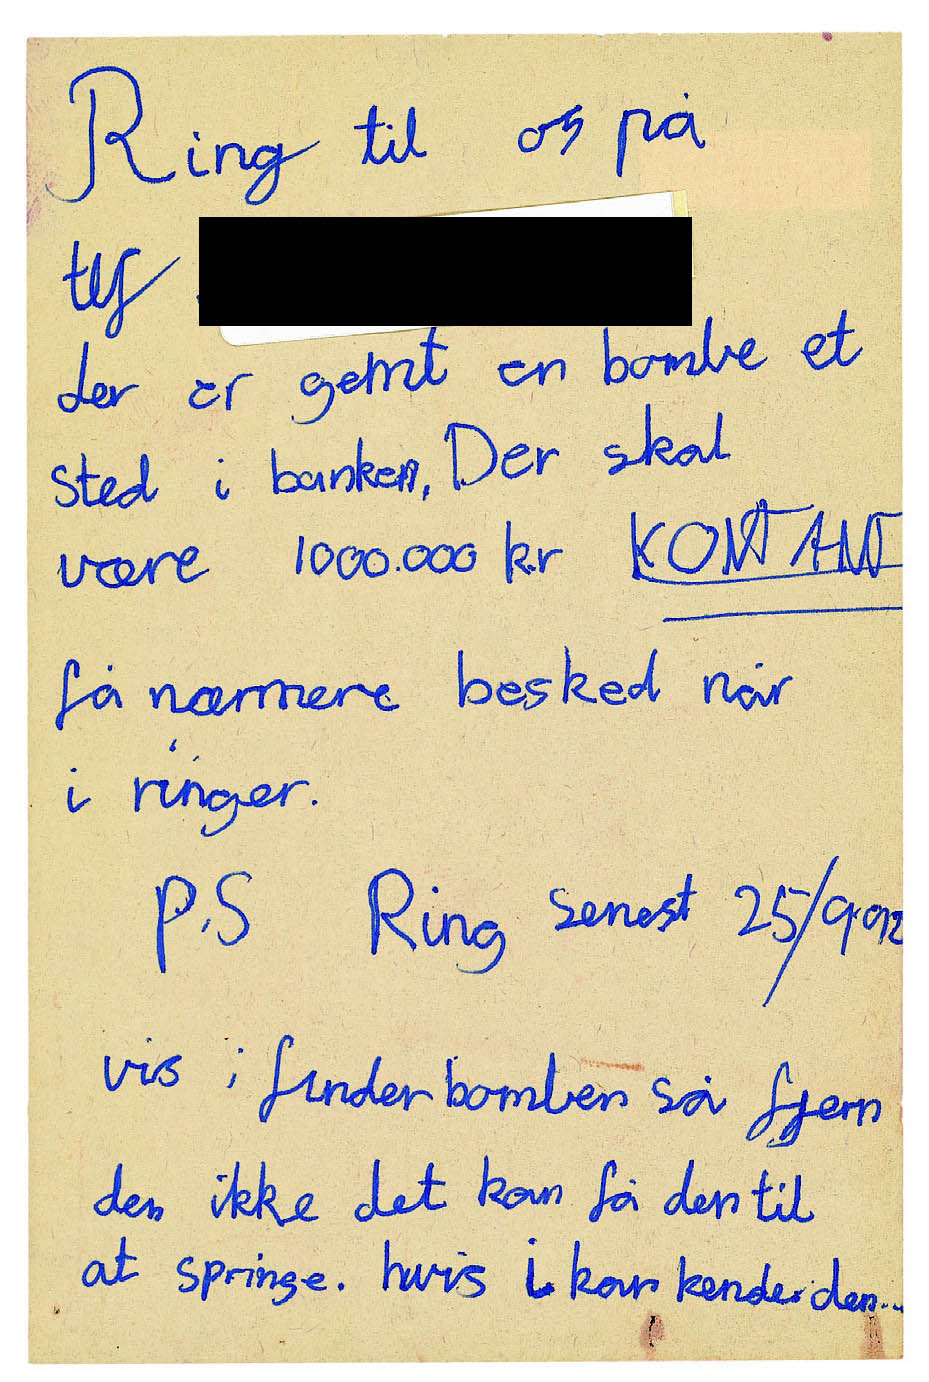 Ring til os på
tlf
der er gemt en bombe et
sted i banken, Der skal
være 1000.000 kr KONTANT
få nærmere besked når
i ringer.
P.S Ring senest 25/9.092
vis i finder bomben så fjern
den ikke det kan få den til
at springe. hvis i kan kende den...